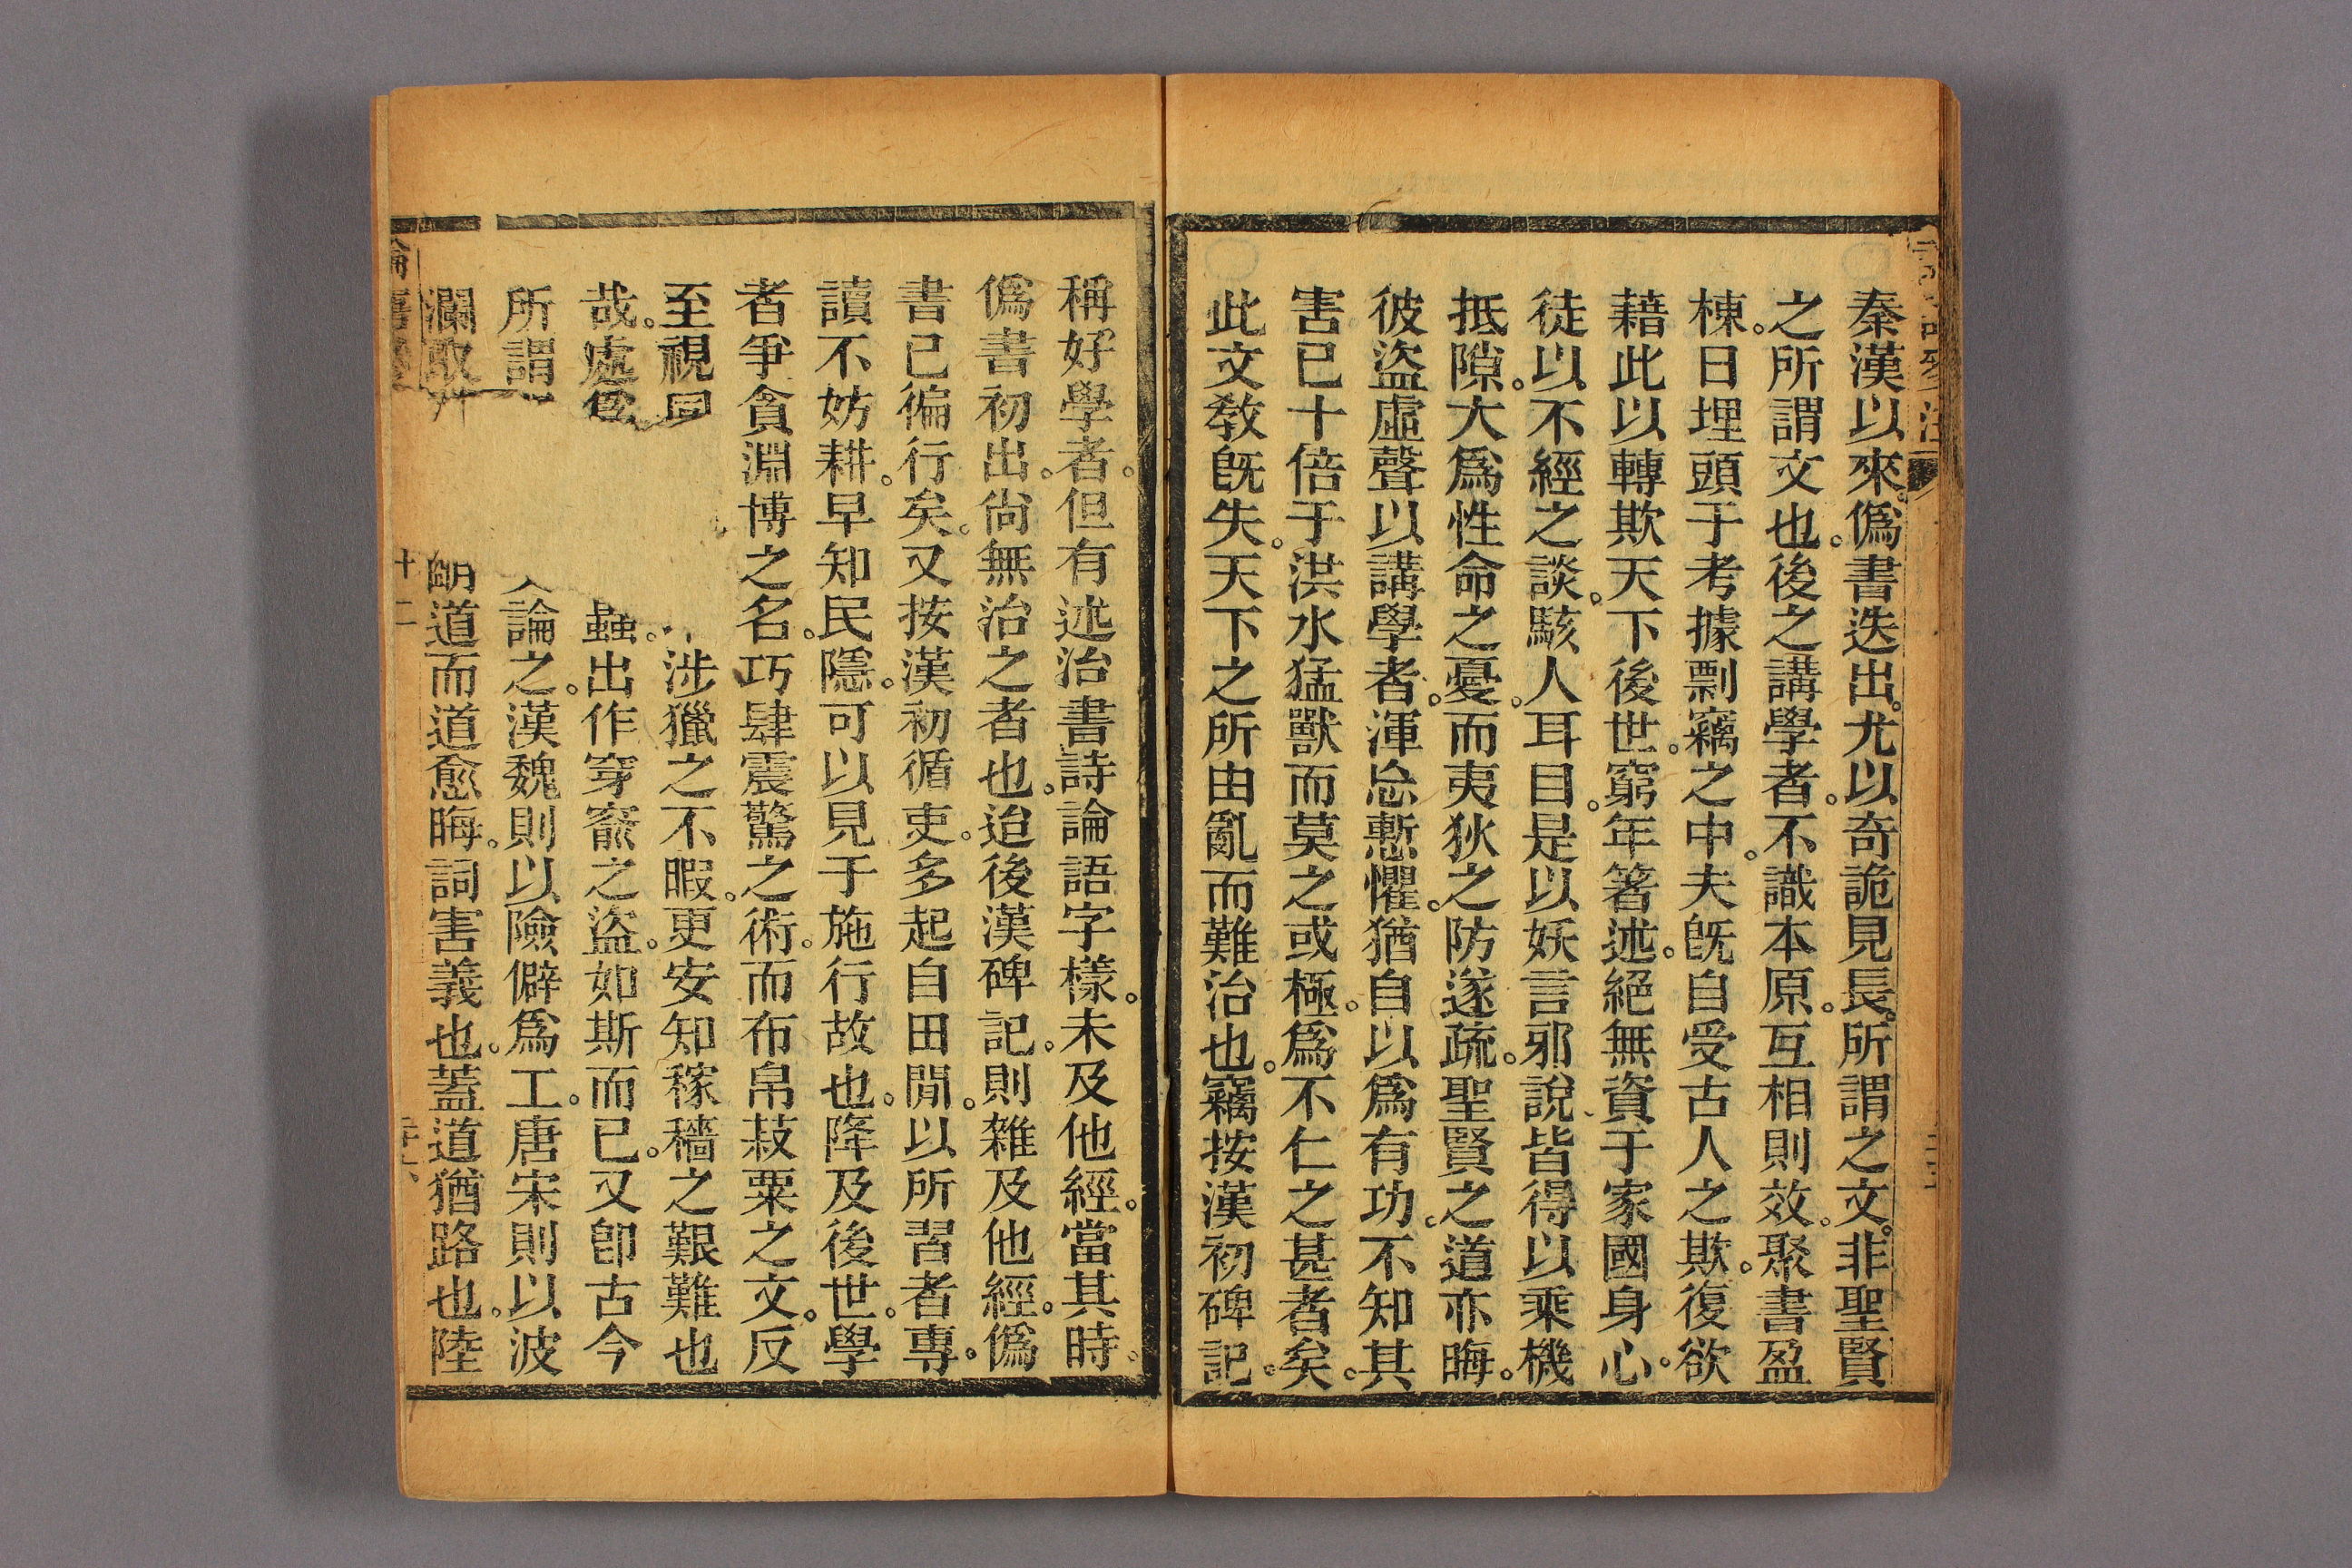 秦漢以來。僞書迭出。尤以奇詭見長。所謂之文。非聖賢
之所謂文也。後之講學者。不識本原。互相則效。聚書盈
棟。日埋頭于考據剽竊之中。夫既自受古人之欺。復欲
藉此以轉欺天下後世。窮年著述。絕無資于家國身心。
徒以不經之談。駭人耳目。是以妖言邪說。皆得以乘機
抵隙。大爲性命之憂。而夷狄之防遂疏。聖賢之道亦晦。
彼盜虛聲以講學者。渾忘慙懼。猶自以爲有功。不知其
害已十倍于洪水猛獸而莫之或極。爲不仁之甚者矣。
此文教既失。天下之所由亂而難治也。竊按漢初碑記。
稱好學者。但有述治書詩論語字樣。未及他經。當其時。
僞書初出。尚無治之者也。迨後漢碑記。則雜及他經。僞
書已徧行矣。又按漢初循吏。多起自田閒。以所習者專。
讀不妨耕。早知民隱。可以見于施行故也。降及後世。學
者爭貪淵博之名。巧肆震驚之術。而布帛菽粟之文。反
至視同 涉獵之不暇。更安知稼穡之艱難也
哉。處 蟲。出作穿窬之盜。如斯而已。又卽古今
所謂 論之。漢魏則以險僻爲工。唐宋則以波
瀾取 明道而道愈晦。詞害義也。蓋道猶路也。陸
十二